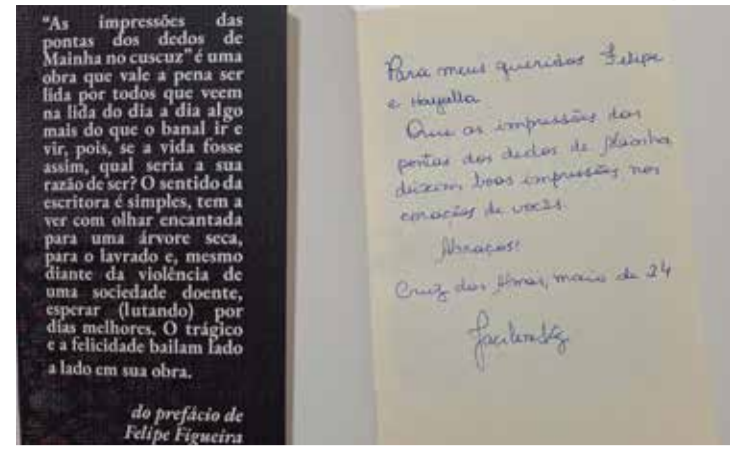 "As impressões das
pontas dos dedos de
Mainha no cuscuz" é uma
obra que vale a pena ser
lida por todos que veem
na lida do dia a dia algo
mais do que o banal ir e
vir, pois, se a vida fosse
assim, qual seria a sua
razão de ser? O sentido da
escritora é simples, tem a
ver com olhar encantada
para uma árvore seca,
para o lavrado e, mesmo
diante da violência de
uma sociedade doente,
esperar (lutando) por
dias melhores. O trágico
e a felicidade bailam lado
a lado em sua obra.
do prefácio de
Felipe Figueira
Para meus queridos Felipe
e Hayalla
Que as impressões das
pontas dos dedos de Mainha
deixem boas impressões nos
corações de vocês.
Abraços!
Cruz das Almas, maio de 24